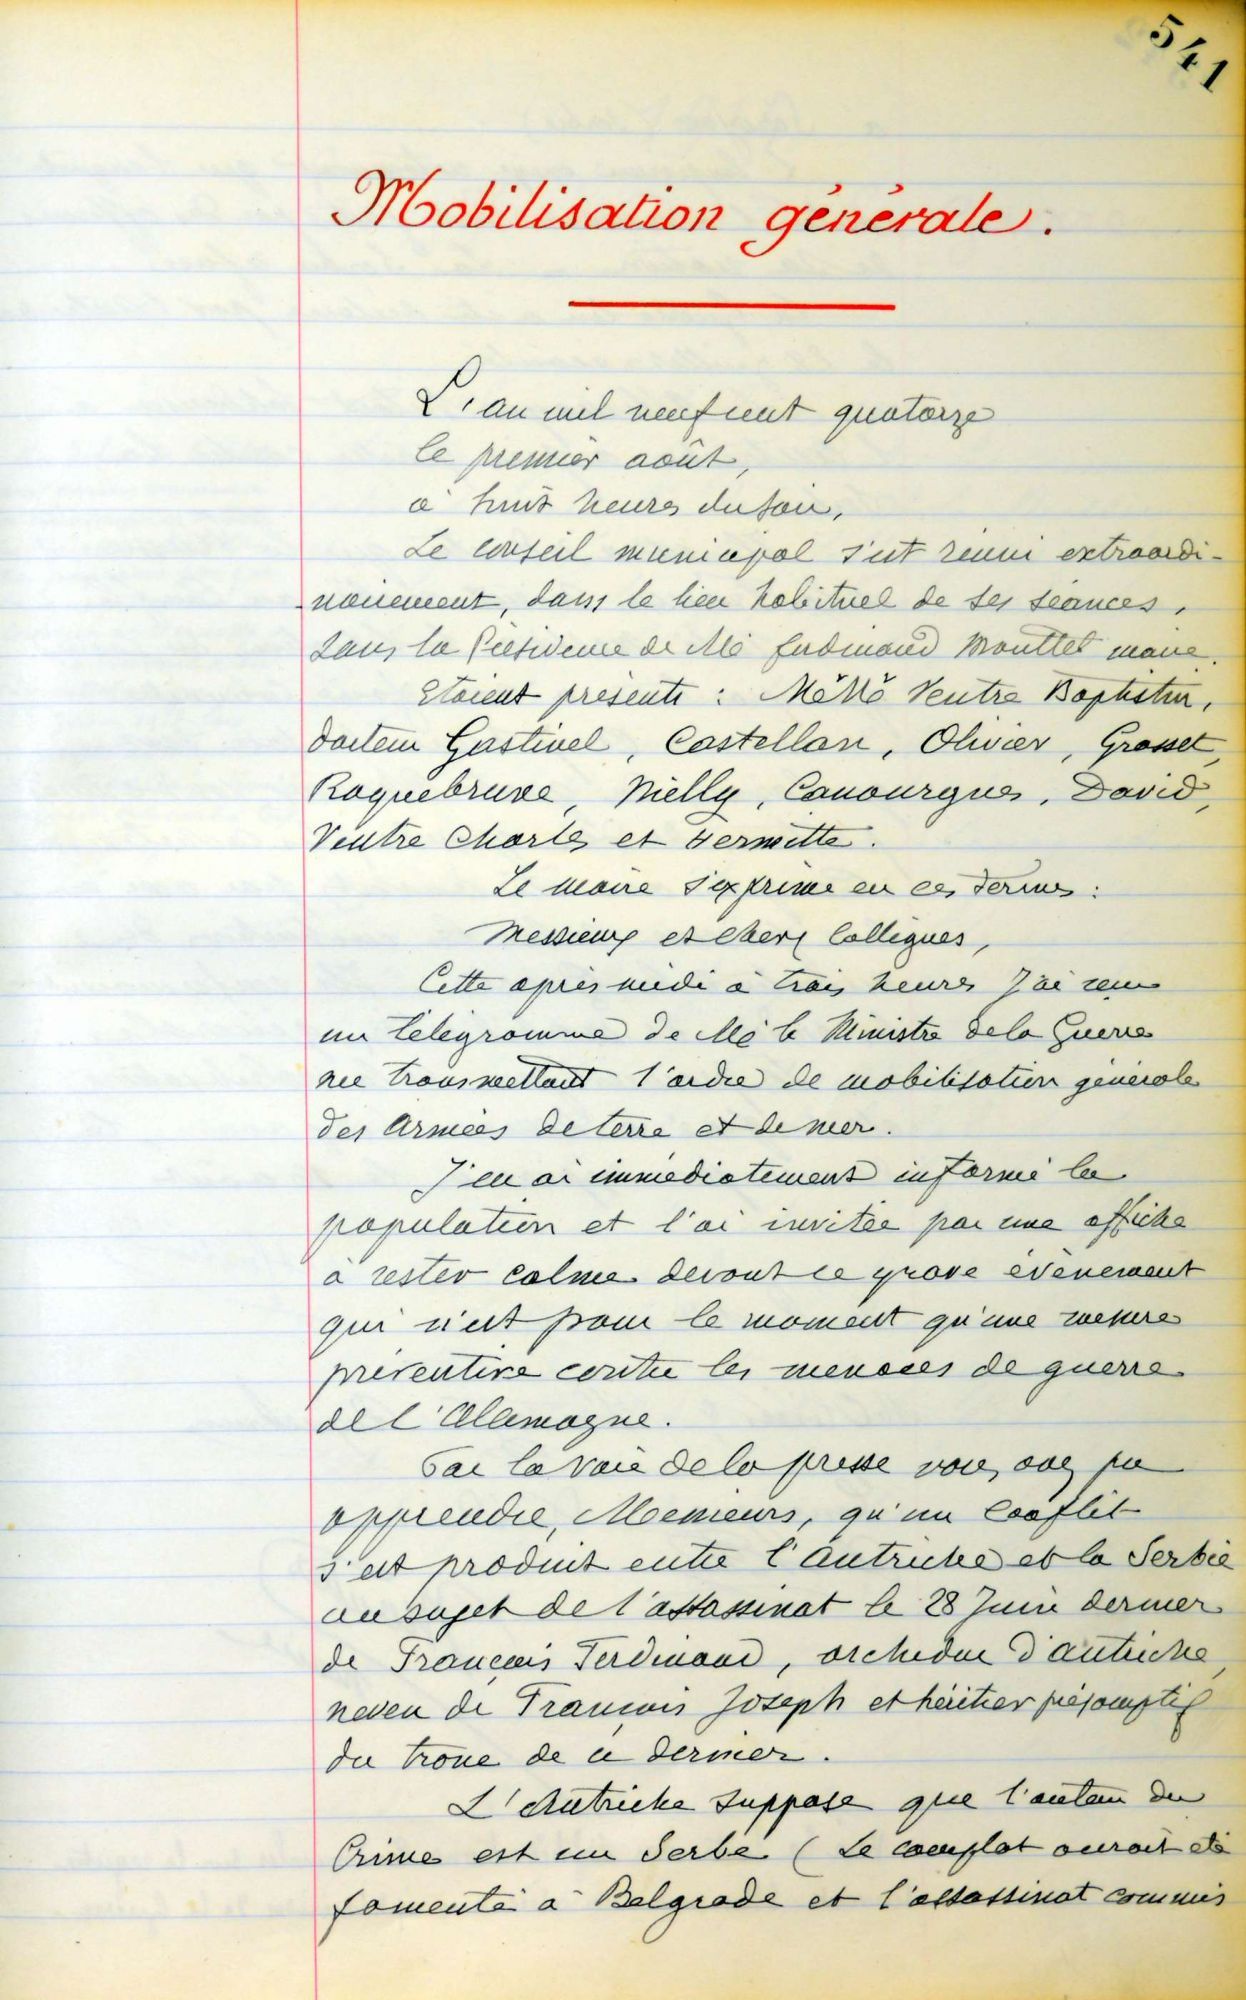 541
Mobilisation générale.
L'an mil neuf cent quatorze
le premier août,
à huit heures du soir,
Le conseil municipal s'est réuni extraordi-
nairement, dans le lieu habituel de ses séances,
sous la Présidence de Mr Ferdinand Mouttet maire.
Etaient présents : MM Ventre Baptistin,
docteur Gastinel, Castellan, Olivier, Grosset,
Roquebrune, Nielly, Canourgues, David,
Ventre Charles et Hermitte.
Le maire s'exprime en ces termes :
Messieurs et chers Collègues,
Cette après midi à trois heures j'ai reçu
un télégramme de Mr le Ministre de la Guerre
me transmettant l'ordre de mobilisation générale
des Armées de terre et de mer.
J'en ai immédiatement informé la
population et l'ai invitée par une affiche
à rester calme devant ce grave évènement
qui n'est pour le moment qu'une mesure
préventive contre les menaces de guerre
de l'Allemagne.
Par la voie de la presse vous avez pu
apprendre, Messieurs, qu'un Conflit
s'est produit entre l'Autriche et la Serbie
au sujet de l'assassinat le 28 Juin dernier
de François Ferdinand, archiduc d'autriche,
neveu de François Joseph et héritier présomptif
du trône de ce dernier.
L'Autriche suppose que l'auteur du
Crime est un Serbe. (Le complot aurait été
fomenté à Belgrade et l'assassinat commis